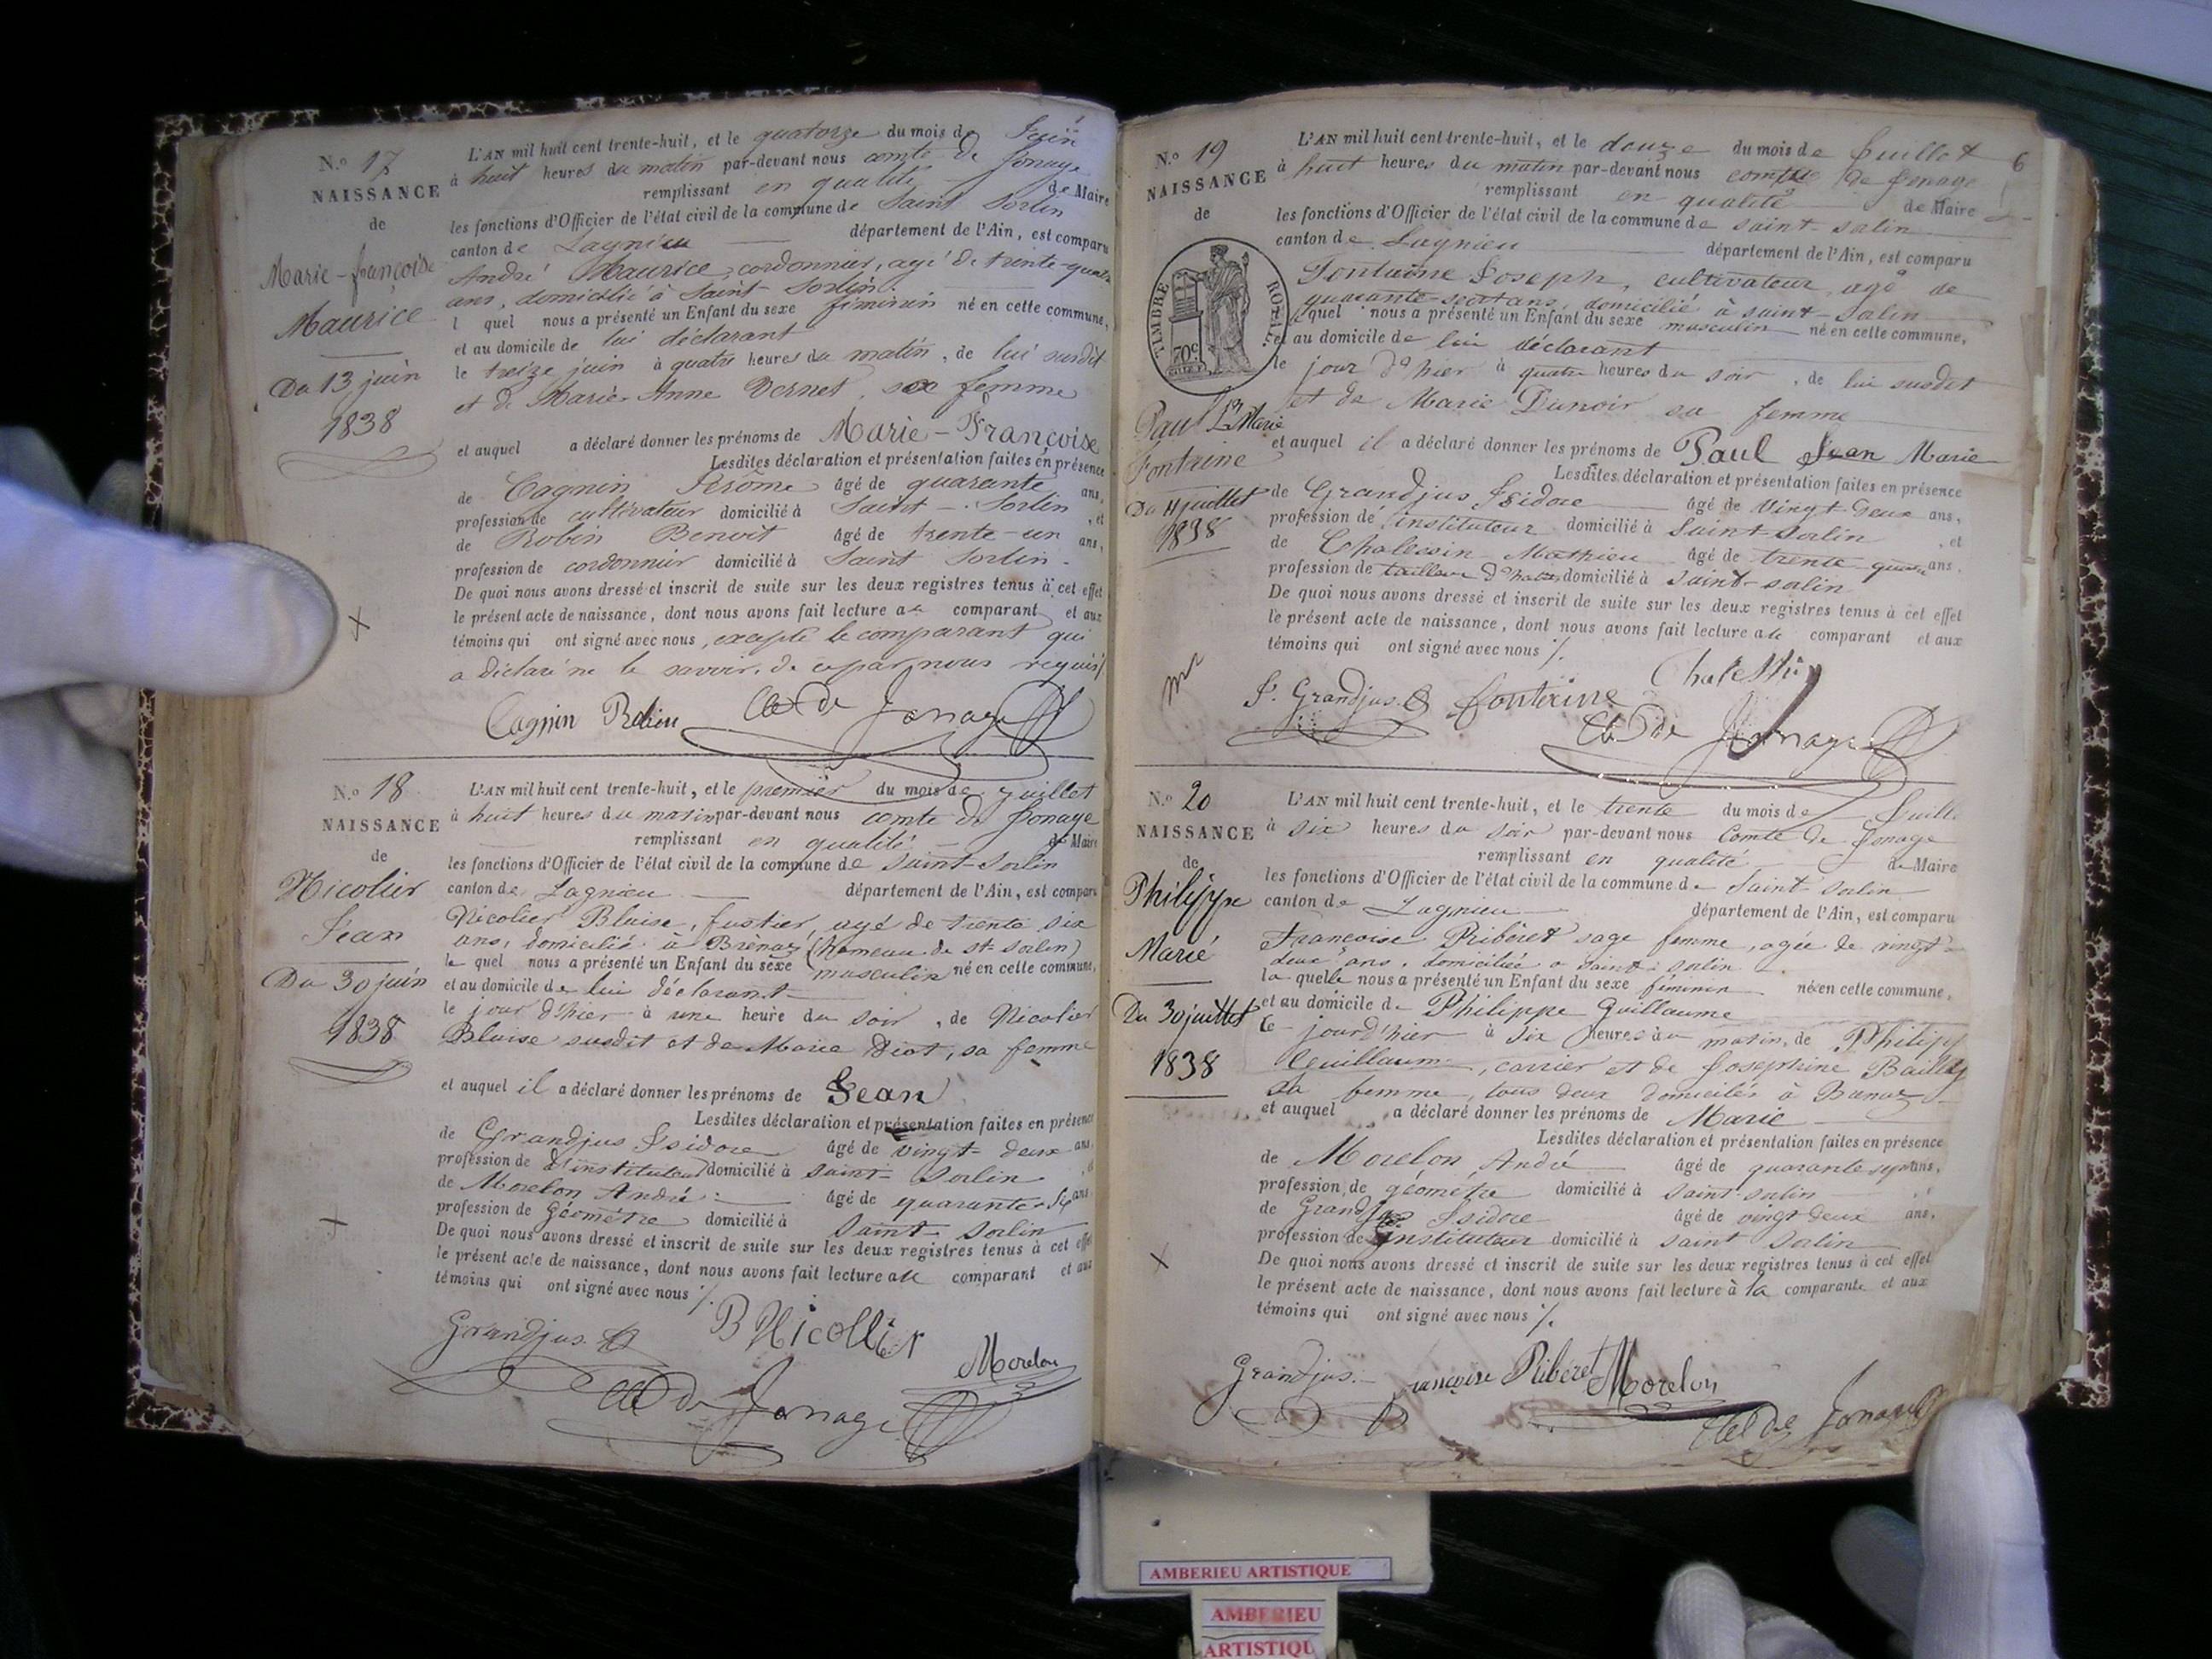 N.o 17
NAISSANCE
de
Marie-françoise
Maurice
Du 13 juin
1838
L'AN mil huit cent trente-huit, et le quatorze du mois de Juin
à huit heures du matin par-devant nous comte de Jonage
remplissant en qualité de Maire
les fonctions d'Officier de l'état civil de la commune de Saint Sorlin
canton de Lagnieu département de l'Ain, est comparu
André Maurice, cordonnier, agé de trente-quatre
ans, domicilié à Saint-Sorlin.
l quel nous a présenté un Enfant du sexe féminin né en cette commune,
et au domicile de lui déclarant
le treize juin à quatre heures du matin, de lui susdit
et de Marie-Anne Vernet, sa femme
et auquel a déclaré donner les prénoms de Marie-Françoise
Lesdites déclaration et présentation faites en présence
de Cagnin Jérôme âgé de quarante ans,
profession de cultivateur domicilié à Saint-Sorlin, et
de Robin Benoit âgé de trente-un ans,
profession de cordonnier domicilié à Saint Sorlin.
De quoi nous avons dressé et inscrit de suite sur les deux registres tenus à cet effet
le présent acte de naissance, dont nous avons fait lecture au comparant et aux
témoins qui ont signé avec nous, excepté le comparant qui
a déclaré ne le savoir, de ce par nous requis
Cagnin Robin Cte de Jonage
N.o 18
NAISSANCE
de
Nicolier
Jean
Du 30 juin
1838
L'AN mil huit cent trente-huit, et le premier du mois de juillet
à huit heures du matin par-devant nous comte de Jonage
remplissant en qualité de Maire
les fonctions d'Officier de l'état civil de la commune de Saint-Sorlin
canton de Lagnieu département de l'Ain, est comparu
Nicolier Blaise, fustier, agé de trente six
ans, domicilié à Brénaz (hameau de st sorlin)
le quel nous a présenté un Enfant du sexe masculin né en cette commune,
et au domicile de lui déclarant
le jour d'hier à une heure du soir, de Nicolier
Blaise susdit et de Marie Diot, sa femme
et auquel il a déclaré donner les prénoms de Jean
Lesdites déclaration et présentation faites en présence
de Grandjus Isidore âgé de vingt-deux ans
profession de d'instituteur domicilié à saint-Sorlin
de Morelon André âgé de quarante-sep ans
profession de Géomètre domicilié à Saint-Sorlin
De quoi nous avons dressé et inscrit de suite sur les deux registres tenus à cet effet
le présent acte de naissance, dont nous avons fait lecture au comparant et aux
témoins qui ont signé avec nous /.
Grandjus B Nicollier
Morelon
Cte de Jonage
6
N.o 19
NAISSANCE
de
TIMBRE ROYAL
70c
Paul Jn Marie
Fontaine
Du 11 juillet
1838
L'AN mil huit cent trente-huit, et le douze du mois de Juillet
à huit heures du matin par-devant nous comte de Jonage
remplissant en qualité de Maire
les fonctions d'Officier de l'état civil de la commune de saint-sorlin
canton de Lagnieu département de l'Ain, est comparu
Fontaine Joseph, cultivateur, agé de
quarante-sept ans, domicilié à saint-Sorlin
lequel nous a présenté un Enfant du sexe masculin né en cette commune,
et au domicile de lui déclarant
le jour d'hier à quatre heures du soir, de lui susdit
et de Marie Dunoir sa femme
et auquel il a déclaré donner les prénoms de Paul Jean Marie
Lesdites déclaration et présentation faites en présence
de Grandjus Isidore âgé de vingt-deux ans,
profession de instituteur domicilié à Saint-sorlin, et
de Chalessin Mathieu âgé de trente-quatre ans,
profession de tailleur d'habits domicilié à Saint-sorlin
De quoi nous avons dressé et inscrit de suite sur les deux registres tenus à cet effet
le présent acte de naissance, dont nous avons fait lecture au comparant et aux
témoins qui ont signé avec nous /.
J. Grandjus fontaine
Cte de Jonage
N.o 20
NAISSANCE
de
Philippe
Marie
Du 30 juillet
1838
L'AN mil huit cent trente-huit, et le trente du mois de Juill.
à six heures du soir par-devant nous Comte de Jonage
remplissant en qualité de Maire
les fonctions d'Officier de l'état civil de la commune de Saint-sorlin
canton de Lagnieu département de l'Ain, est comparu
Françoise Ribéret sage femme, agée de vingt-
deux ans, domiciliée à Saint-Sorlin
la quelle nous a présenté un Enfant du sexe féminin né en cette commune,
et au domicile de Philippe Guillaume
le jourd'hier à six heures du matin, de Philipp
Guillaume, carrier et de Josephine Bailly
sa femme, tous deux domiciliés à Brenaz
et auquel a déclaré donner les prénoms de Marie
Lesdites déclaration et présentation faites en présence
de Morelon André âgé de quarante sept ans,
profession de géomètre domicilié à saint-sorlin
de Grandjus Isidore âgé de vingt deux ans,
profession de instituteur domicilié à saint Sorlin
De quoi nous avons dressé et inscrit de suite sur les deux registres tenus à cet effet
le présent acte de naissance, dont nous avons fait lecture à la comparante et aux
témoins qui ont signé avec nous /.
Grandjus. françoise Riberet Morelon
Cte de Jonage
AMBERIEU ARTISTIQUE
AMBERIEU
ARTISTIQU